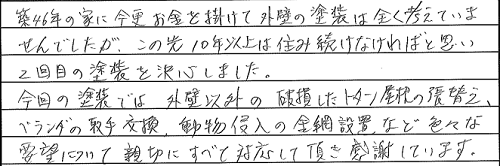 築46年の家に今更お金を掛けて外壁の塗装は全く考えていま
せんでしたが、この先10年以上は住み続けなければと思い
2回目の塗装を決心しました。
今回の塗装では外壁以外の破損したトタン屋根の張替え、
ベランダの取手交換、動物侵入の金網設置など色々な
要望について親切にすべて対応して頂き感謝しています。